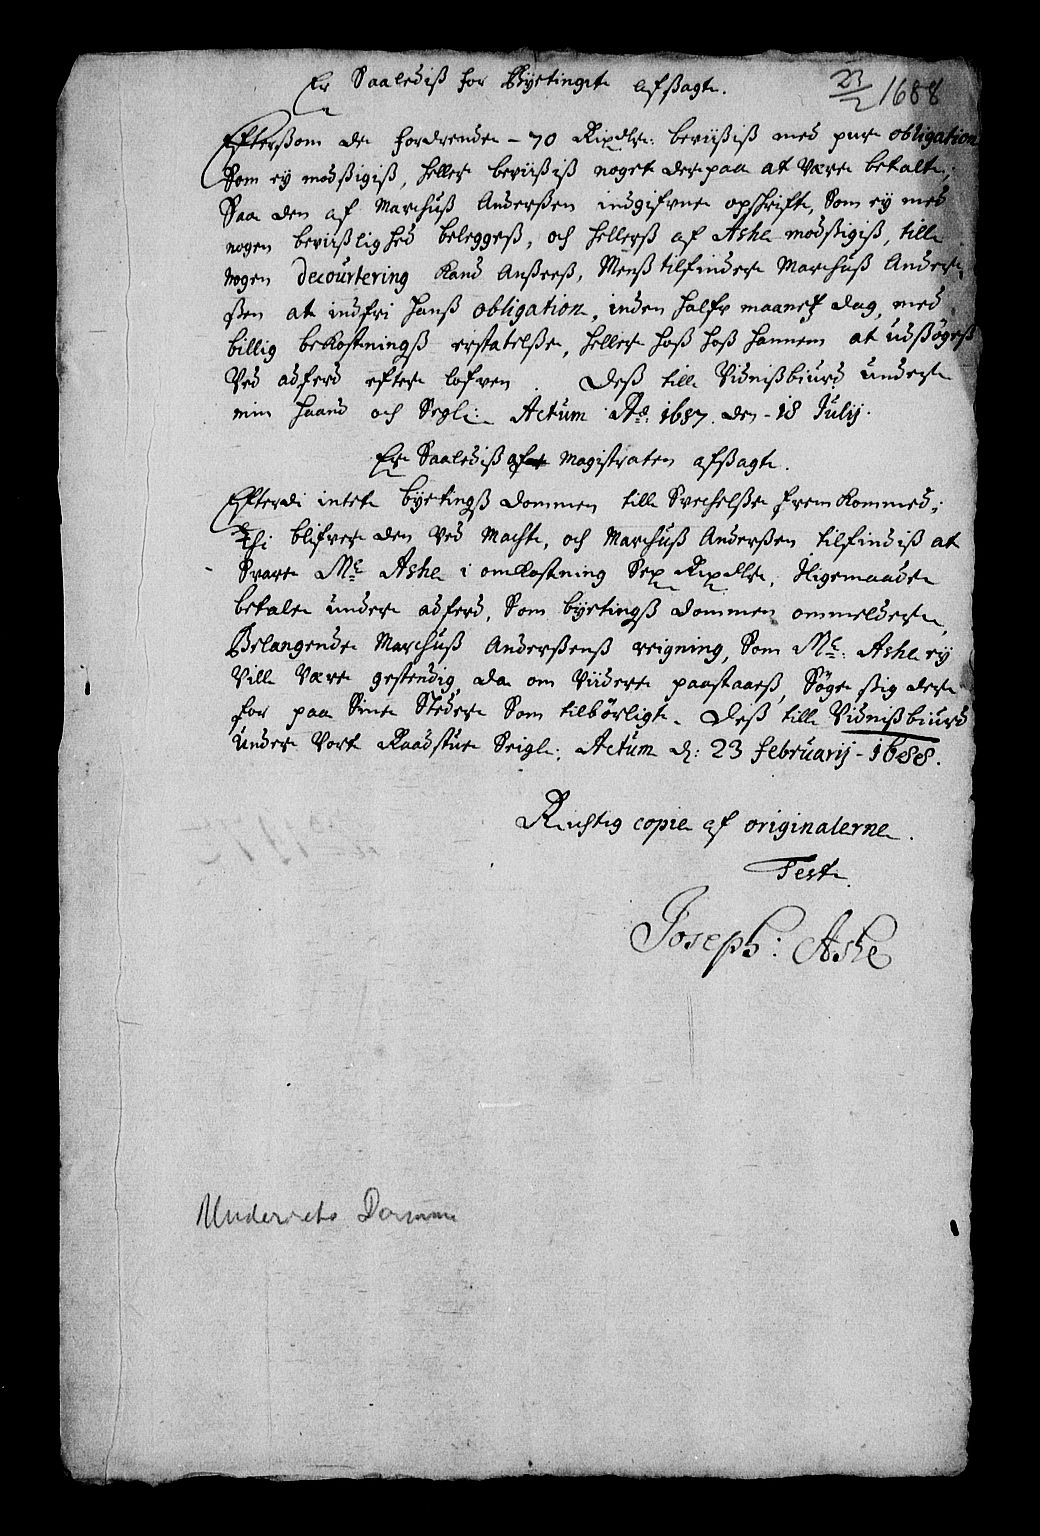 Er Saalediß for Byetinget afßagt. 23/2 1688
Efterßom de fordrende - 70 Rixdlr: beviißiß med pure obligation
Som ey modßigiß, heller beviißiß noget derpaa at være betalt,
Saa den af Marchuß Anderßen indgifvne opschrift, Som ey med
nogen beviißlighed beleggeß, och hellerß af Ashe modßigiß, till
nogen decourtering kand anßeeß, Menß tilfinder Marchuß Ander-
ßen at indfri hanß obligation, inden halfr maanetz dag, med
billig bekostningß erstatelße, heller hoß hoß hannem at udßögeß
ved adferd efter lofven. Deß till Vidnißbiurd under
min haand och Segl: Actum Ao: 1687. den - 18 Julij.
Er Saalediß af Magistraten afßagt.
Efterdi intet byetingß dommen till Svechelße fremkommed;
Thi blifver den ved Macht, och Marchuß Anderßen tilfindiß at
Svare Mr. Ashe i omkostning Sex Rixdlr, Ligemaade
betale under adferd, Som byetingß dommen ommelder,
Belangende Marchuß Anderßenß reigning, Som Mr: Ashe ey
Ville Være gestendig, da om Viidere paastaaeß, Söge ßig der
for paa Sine Steder Som tilbörligt. Deß till Vidnißbiurd
under Vort Raadstue Seigl: Actum d: 23 februarij - 1688.
Richtig copie af originalerne.
Test.
Joseph: Ashe
Underrets Domme